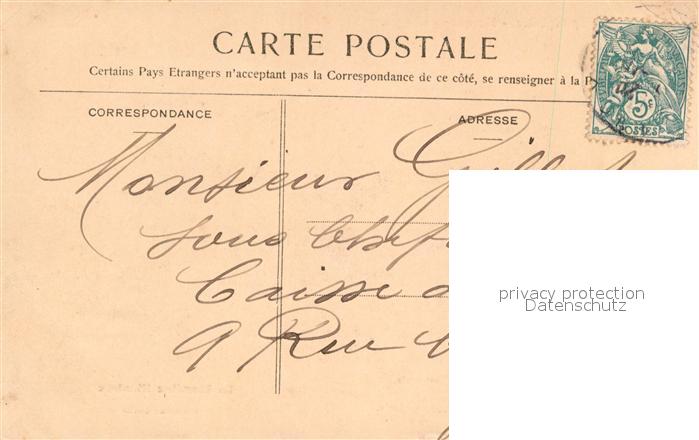 CARTE POSTALE
Certains Pays Etrangers n'acceptant pas la Correspondance de ce côté, se renseigner à la P
CORRESPONDANCE
ADRESSE
5c
POSTES
Monsieur
Sous Chef
Caisse d
9 Rue
privacy protection
Datenschutz